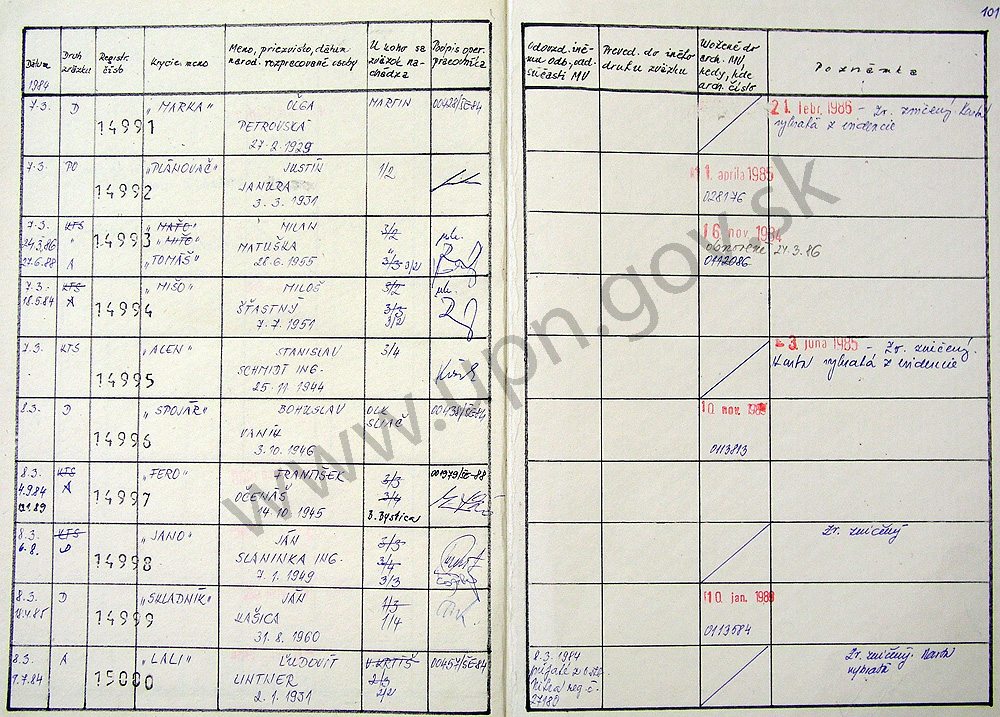 101
Dátum
1984
Druh
zväzku
Registr.
číslo
Krycie meno
Meno, priezvisko, dátum
narod. rozpracovanej osoby
U koho sa
zväzok na-
chádza
Podpis oper.
pracovníka
Odovzd. iné-
mu odb., od.
súčasti MV
Preved. do iného
druhu zväzku
Uložené do
arch. MV
kedy, kde
arch. číslo
Poznámka
7.3. D 14991 "MARKA" OĽGA MARTIN 00428/SE-84
PETROVSKÁ
27.2.1929
21. febr. 1986 - Zv. zničený. Karta
vybratá z evidencie
7.3. PO 14992 "PLÁNOVAČ" JUSTÍN 1/2
JANURA
3.3.1931
1. apríla 1985
028176
7.3. KTS 14993 "MAŤO" MILAN 3/2
24.3.86 " "MIŤO" MATUŠKA "
27.6.88 A "TOMÁŠ" 28.6.1955 3/3 3/2
16. nov. 1984
obnovené 24.3.86
0112086
7.3. KTS 14994 "MIŠO" MILOŠ 3/2
18.5.84 A ŠŤASTNÝ 3/3
7.7.1951 3/2
7.3. KTS 14995 "ALEN" STANISLAV 3/4
SCHMIDT ING.
25.11.1944
3. júna 1985 - Zv. zničený.
Karta vybratá z evidencie
8.3. D 14996 "SPOJÁR" BOHUSLAV OLK
SLIAČ 00438/SE-84
VANÍK
3.10.1946
10. nov.
0113813
8.3. KTS 14997 "FERO" FRANTIŠEK 3/3 001979/SE-88
4.9.84 A OČENÁŠ 3/4
14.10.1945 B. Bystrica
8.3. KTS 14998 "JANO" JÁN 3/3
6.8. D SLANINKA ING. 3/4
7.1.1949 3/3
Zv. zničený
8.3. D 14999 "SKLADNÍK" JÁN 1/3
KAŠICA 1/4
31.8.1960
10. jan.
0113584
8.3. A 15000 "LALI" ĽUDOVÍT V KRTÍŠ 00457/SE-84
1.7.84 LINTNER 2/3
2.1.1931 2/2
8.3.1984
Nitra reg. č.
27180
Zv. zničený. Karta
vybratá
www.upn.gov.sk